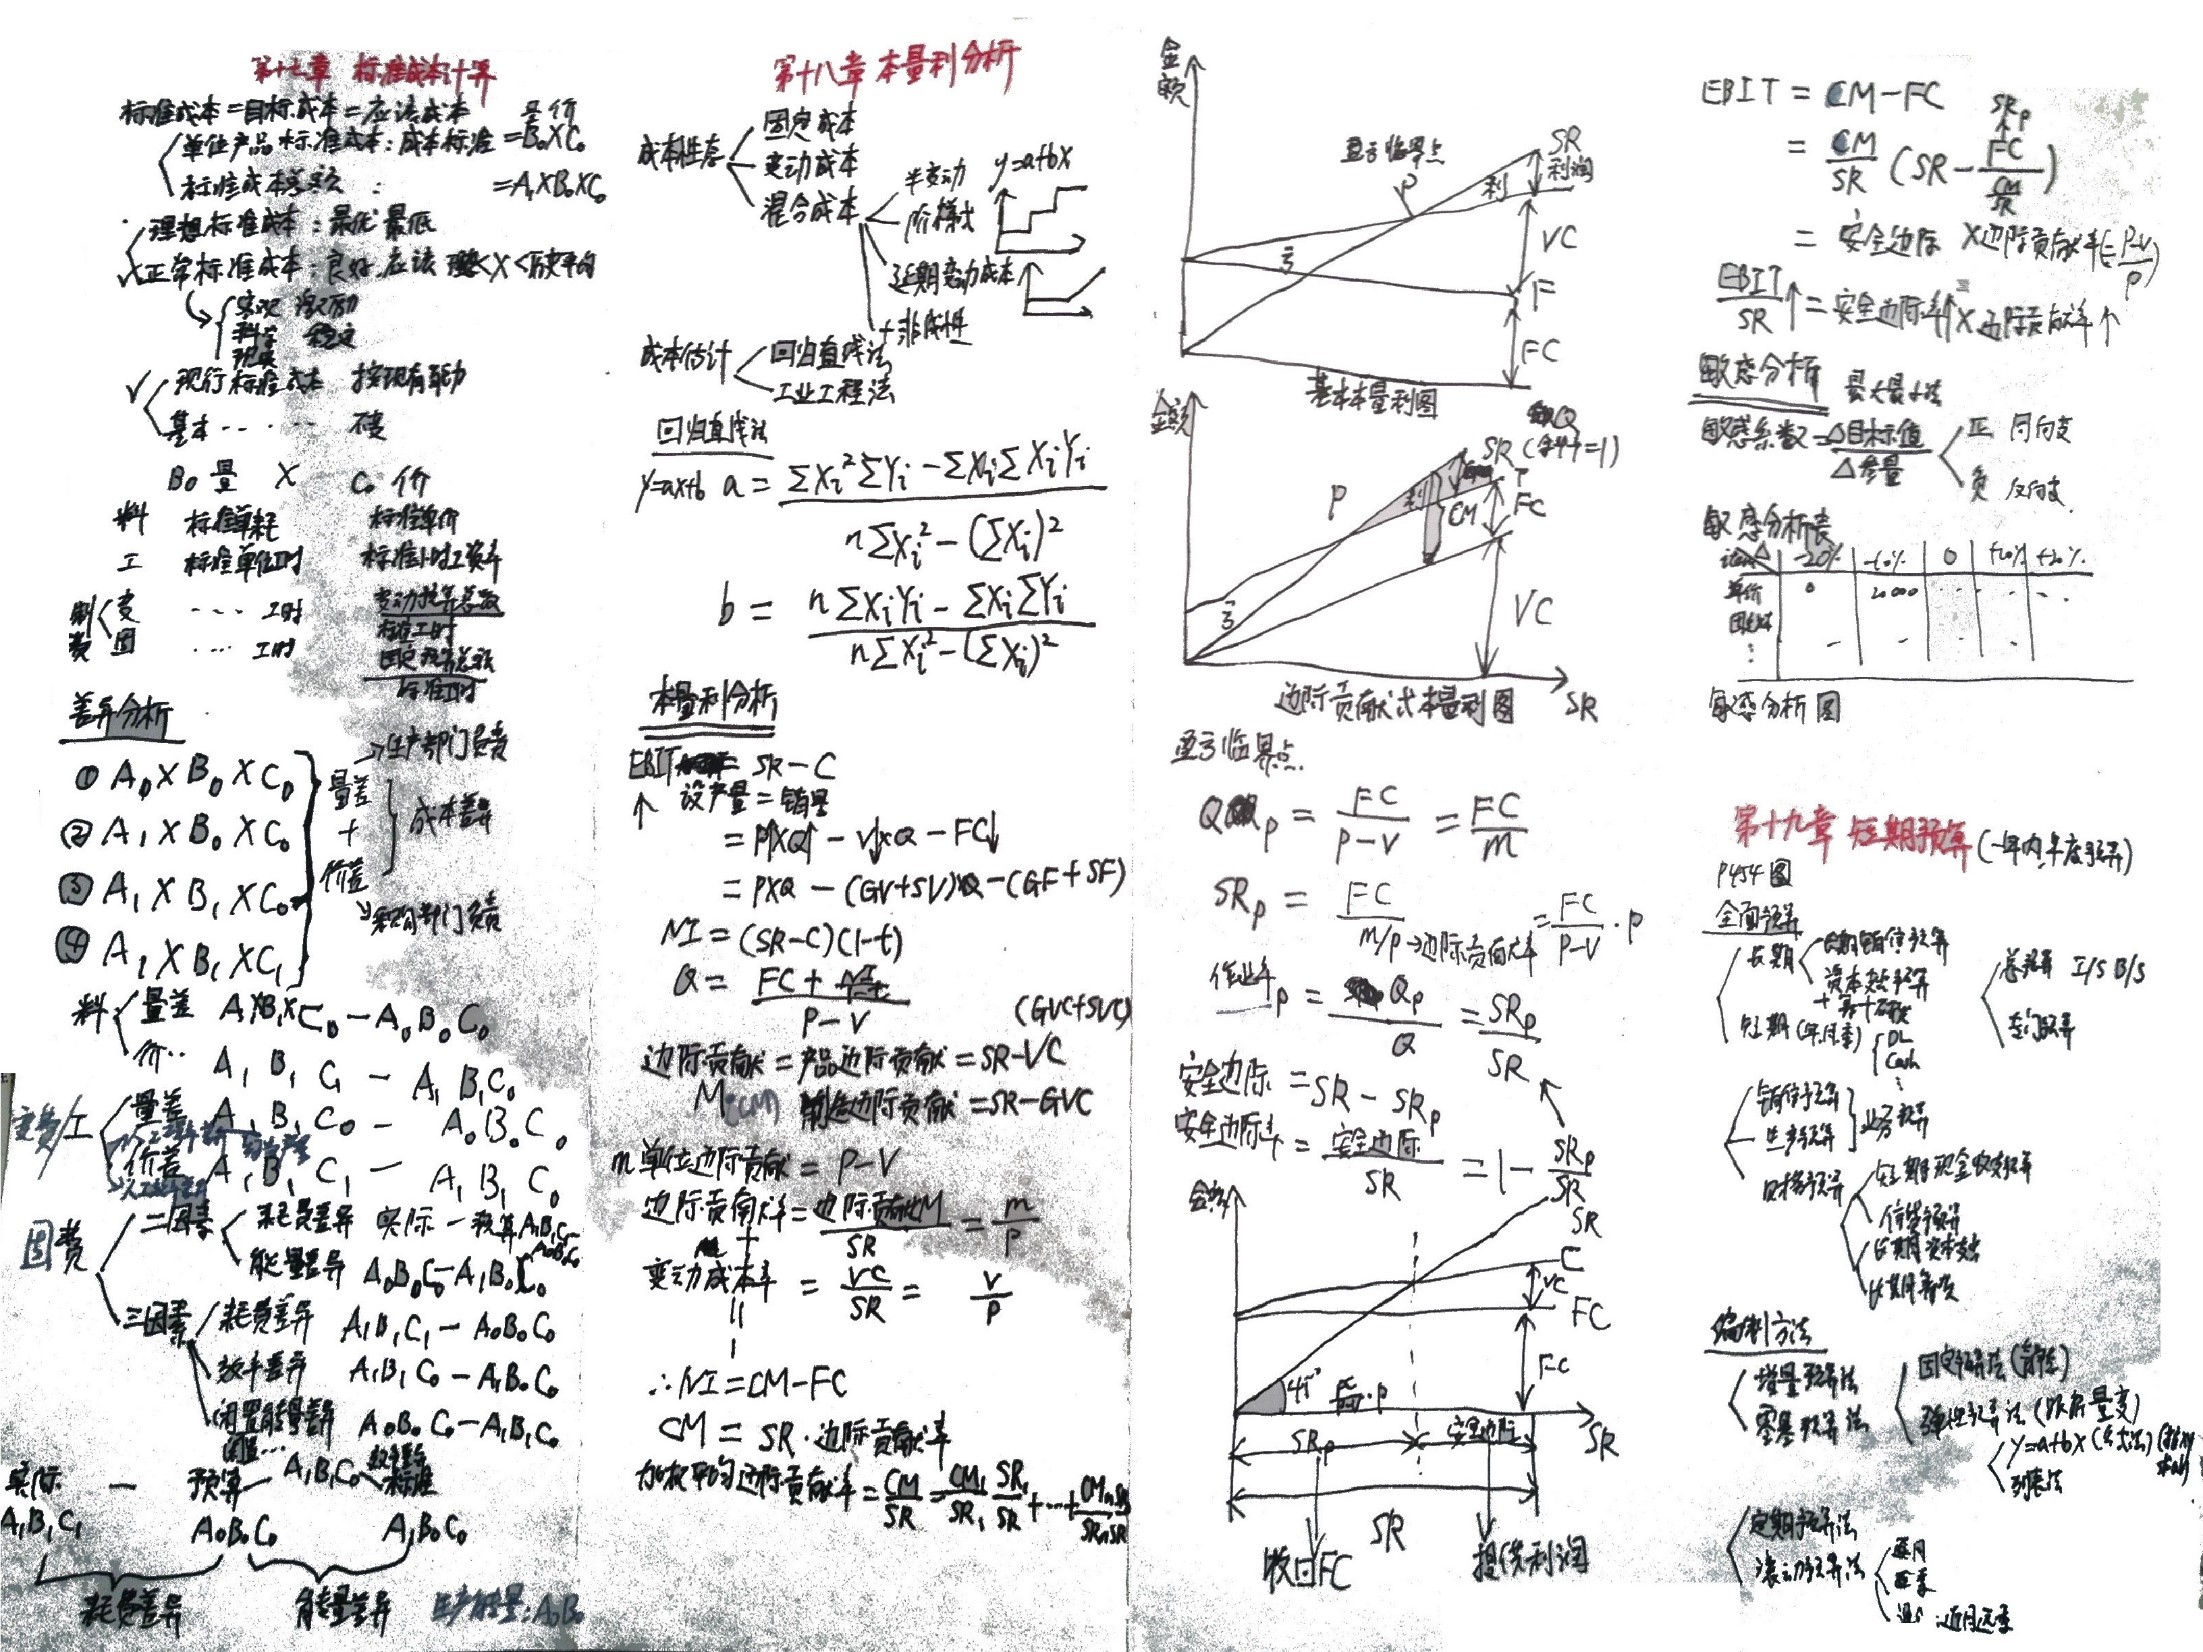 第十七章 标准成本计算
标准成本=目标成本=应该成本 量 价
单位产品标准成本:成本标准=B₀×C₀
标准成本总额: =A₁×B₀×C₀
理想标准成本:最优 最低
正常标准成本:良好 应该 理想<X<历史平均
客观 激励
科学 稳定
现实
√ 现行标准成本 按现有
基本 ‥‥ 不变
B₀ 量 X C₀ 价
料 标准单耗 标准单价
工 标准单位工时 标准小时工资率
制费 变 --- 工时 变动预算总数
标准工时
固 ---- 工时 固定预算总数
标准工时
差异分析
① A₀×B₀×C₀
② A₁×B₀×C₀
③ A₁×B₁×C₀
④ A₁×B₁×C₁
量差 →生产部门负责
+
成本差异
价差
→采购部门负责
料 量差 A₁B₁×C₀-A₀B₀C₀
价‥ A₁B₁C₁-A₁B₁C₀
变费/工 量差 A₁B₁C₀-A₀B₀C₀
价差 A₁B₁C₁-A₁B₁C₀
固费 二因素 耗费差异 实际-预算A₁B₁C₁-A₀B₀C₀
能量差异 A₀B₀C₀-A₁B₀C₀
三因素 耗费差异 A₁B₁C₁-A₀B₀C₀
效率差异 A₁B₁C₀-A₁B₀C₀
闲置能量差异 A₀B₀C₀-A₁B₁C₀
实际 - 预算 - A₁B₁C₀ 标准
A₁B₁C₁ A₀B₀C₀ A₁B₀C₀
耗费差异 能量差异 生产能量:A₀B₀
第十八章 本量利分析
成本性态 固定成本
变动成本
混合成本
半变动 y=a+bx
阶梯式
延期变动成本
+非线性
成本估计 回归直线法
工业工程法
回归直线法
y=ax+b a=(∑Xi²∑Yi-∑Xi∑XiYi)/(n∑Xi²-(∑Xi)²)
b=(n∑XiYi-∑Xi∑Yi)/(n∑Xi²-(∑Xi)²)
本量利分析
EBIT=SR-C
↑ 设产量=销量
=P↑×Q↑-V↓×Q-FC↓
=P×Q-(GV+SV)×Q-(GF+SF)
NI=(SR-C)(1-t)
Q=(FC+NI/(1-t))/(P-V)
(GVC+SVC)
边际贡献=产品边际贡献=SR-VC
M(CM) 制造边际贡献=SR-GVC
m 单位边际贡献=P-V
边际贡献率=边际贡献M/SR=m/P
+
变动成本率=VC/SR=V/P
||
1
∴NI=CM-FC
CM=SR·边际贡献率
加权平均边际贡献率=CM/SR=CM₁/SR₁ SR₁/SR+…+CMn/SRn SRn/SR
金额
盈亏临界点
P
SR
利润
利
VC
亏
F
FC
基本本量利图
Q
金额
SR (斜率=1)
P
利
CM
FC
亏
VC
边际贡献式本量利图 SR
盈亏临界点
Qp=FC/(P-V)=FC/m
SRp=FC/(m/p)→边际贡献率=FC/(P-V)·P
作业率p=Qp/Q=SRp/SR
安全边际=SR-SRp
安全边际率=安全边际/SR=1-SRp/SR
金额
SR
C
VC
FC
FC
45° FC/m·P
SRp 安全边际 SR
SR
收回FC 提供利润
EBIT=CM-FC
SRp
=CM/SR(SR-FC/(CM/SR))
=安全边际×边际贡献率(=(P-V)/P)
EBIT/SR↑=安全边际率↑×边际贡献率↑
敏感分析 最大最小法
敏感系数=△目标值/△参量
正 同向变
负 反向变
敏感分析表
-20% -10% 0 +10% +20%
单价 0 20000
固定成本
⋮
敏感分析图
第十九章 短期预算(一年内,年度预算)
P454图
全面预算
长期 长期销售预算
资本支出预算
短期(年月季) DL
Cash
总预算 I/S B/S
专门预算
销售预算
生产预算
业务预算
财务预算 短期现金收支预算
信贷预算
长期资本支出
长期筹资
编制方法
增量预算法
零基预算法
固定预算法
弹性预算法
Y=a+bX(公式法)
列表法
定期预算法
滚动预算法
逐月
逐季
混合:近月远季